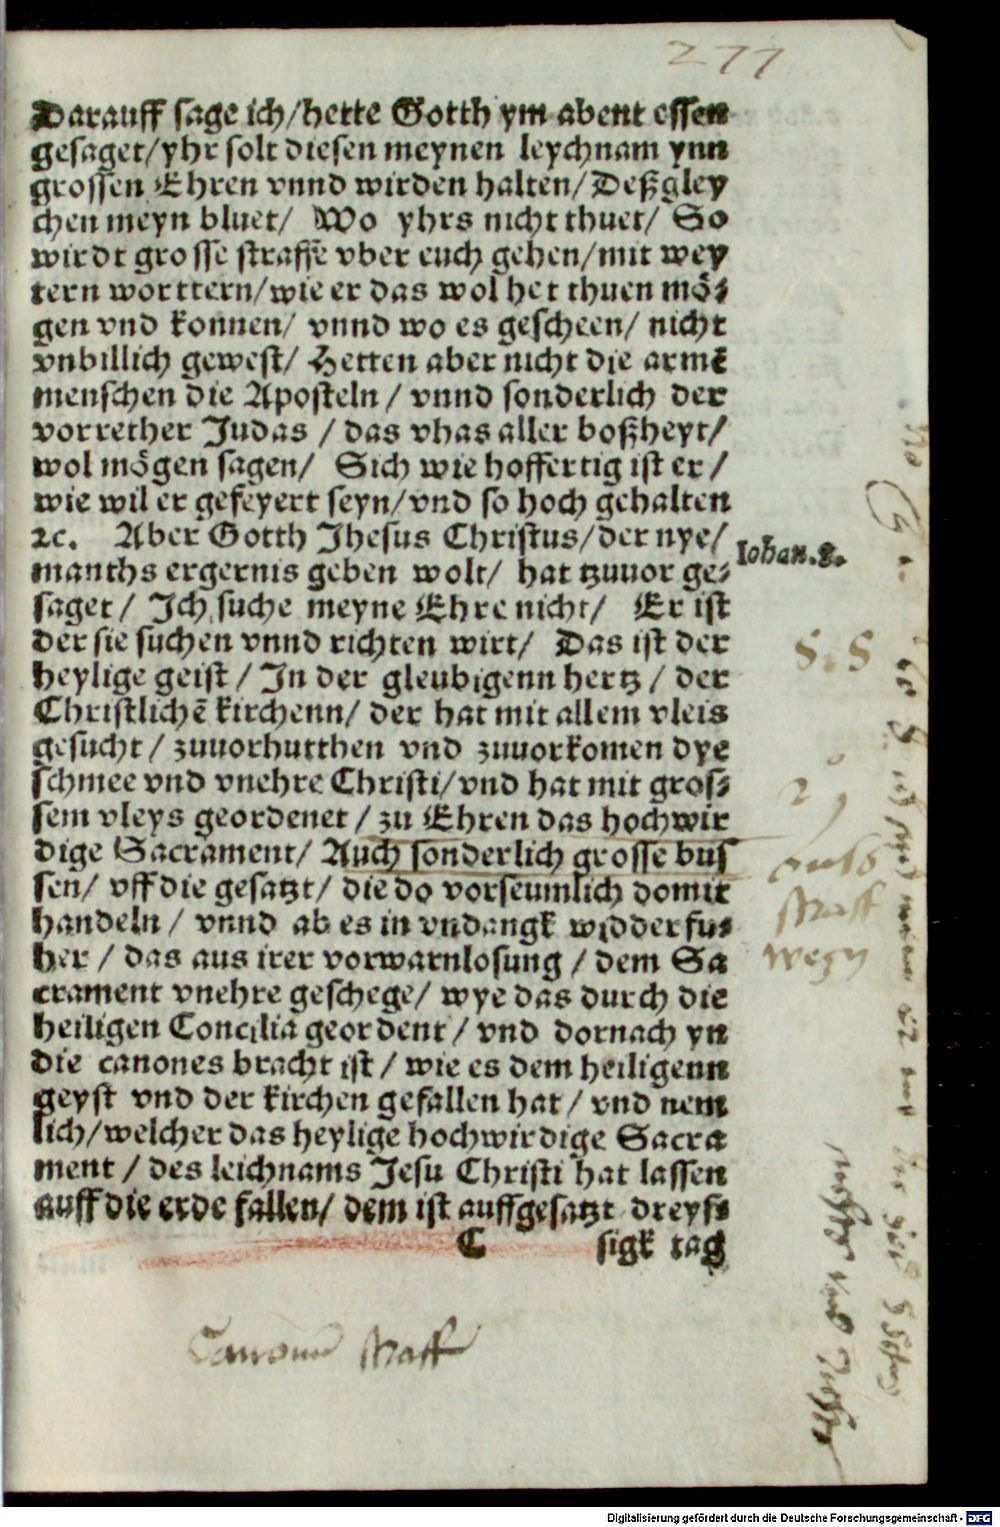 277
Darauff sage ich/hette Gotth ym abent essen
gesaget/yhr solt diesen meynen leychnam ynn
grossen Ehren vnnd wirden halten/Deßgley
chen meyn bluet/ Wo yhrs nicht thuet/ So
wirdt grosse straffe vber euch gehen/mit wey
tern worttern/wie er das wol het thuen mö⸗
gen vnd konnen/ vnnd wo es gescheen/ nicht
vnbillich gewest/ Hetten aber nicht die armē
menschen die Aposteln/ vnnd sonderlich der
vorrether Judas / das vhas aller boßheyt/
wol mögen sagen/ Sich wie hoffertig ist er/
wie wil er gefeyert seyn/vnd so hoch gehalten
ꝛc. Aber Gotth Jhesus Christus/der nye/
manths ergernis geben wolt/ hat tzuuor ge⸗
saget/ Ich suche meyne Ehre nicht/ Er ist
der sie suchen vnnd richten wirt/ Das ist der
heylige geist / In der gleubigenn hertz / der
Christlichē kirchenn/ der hat mit allem vleis
gesucht / zuuorhutthen vnd zuuorkomen dye
schmee vnd vnehre Christi/vnd hat mit gros⸗
sem vleys geordenet / zu Ehren das hochwir
dige Sacrament/ Auch sonderlich grosse bus
sen/ vff die gesatzt/ die do vorseumlich domit
handeln / vnnd ab es in vndangk widderfu⸗
her / das aus irer vorwarnlosung / dem Sa
crament vnehre geschege/ wye das durch die
heiligen Concilia geordent / vnd dornach yn
die canones bracht ist / wie es dem heiligenn
geyst vnd der kirchen gefallen hat / vnd nem
lich/welcher das heylige hochwirdige Sacra
ment / des leichnams Jesu Christi hat lassen
auff die erde fallen/ dem ist auffgesatzt dreyss
C sigk tag
Iohan.8.
Canonum straff
Digitalisierung gefördert durch die Deutsche Forschungsgemeinschaft - DFG